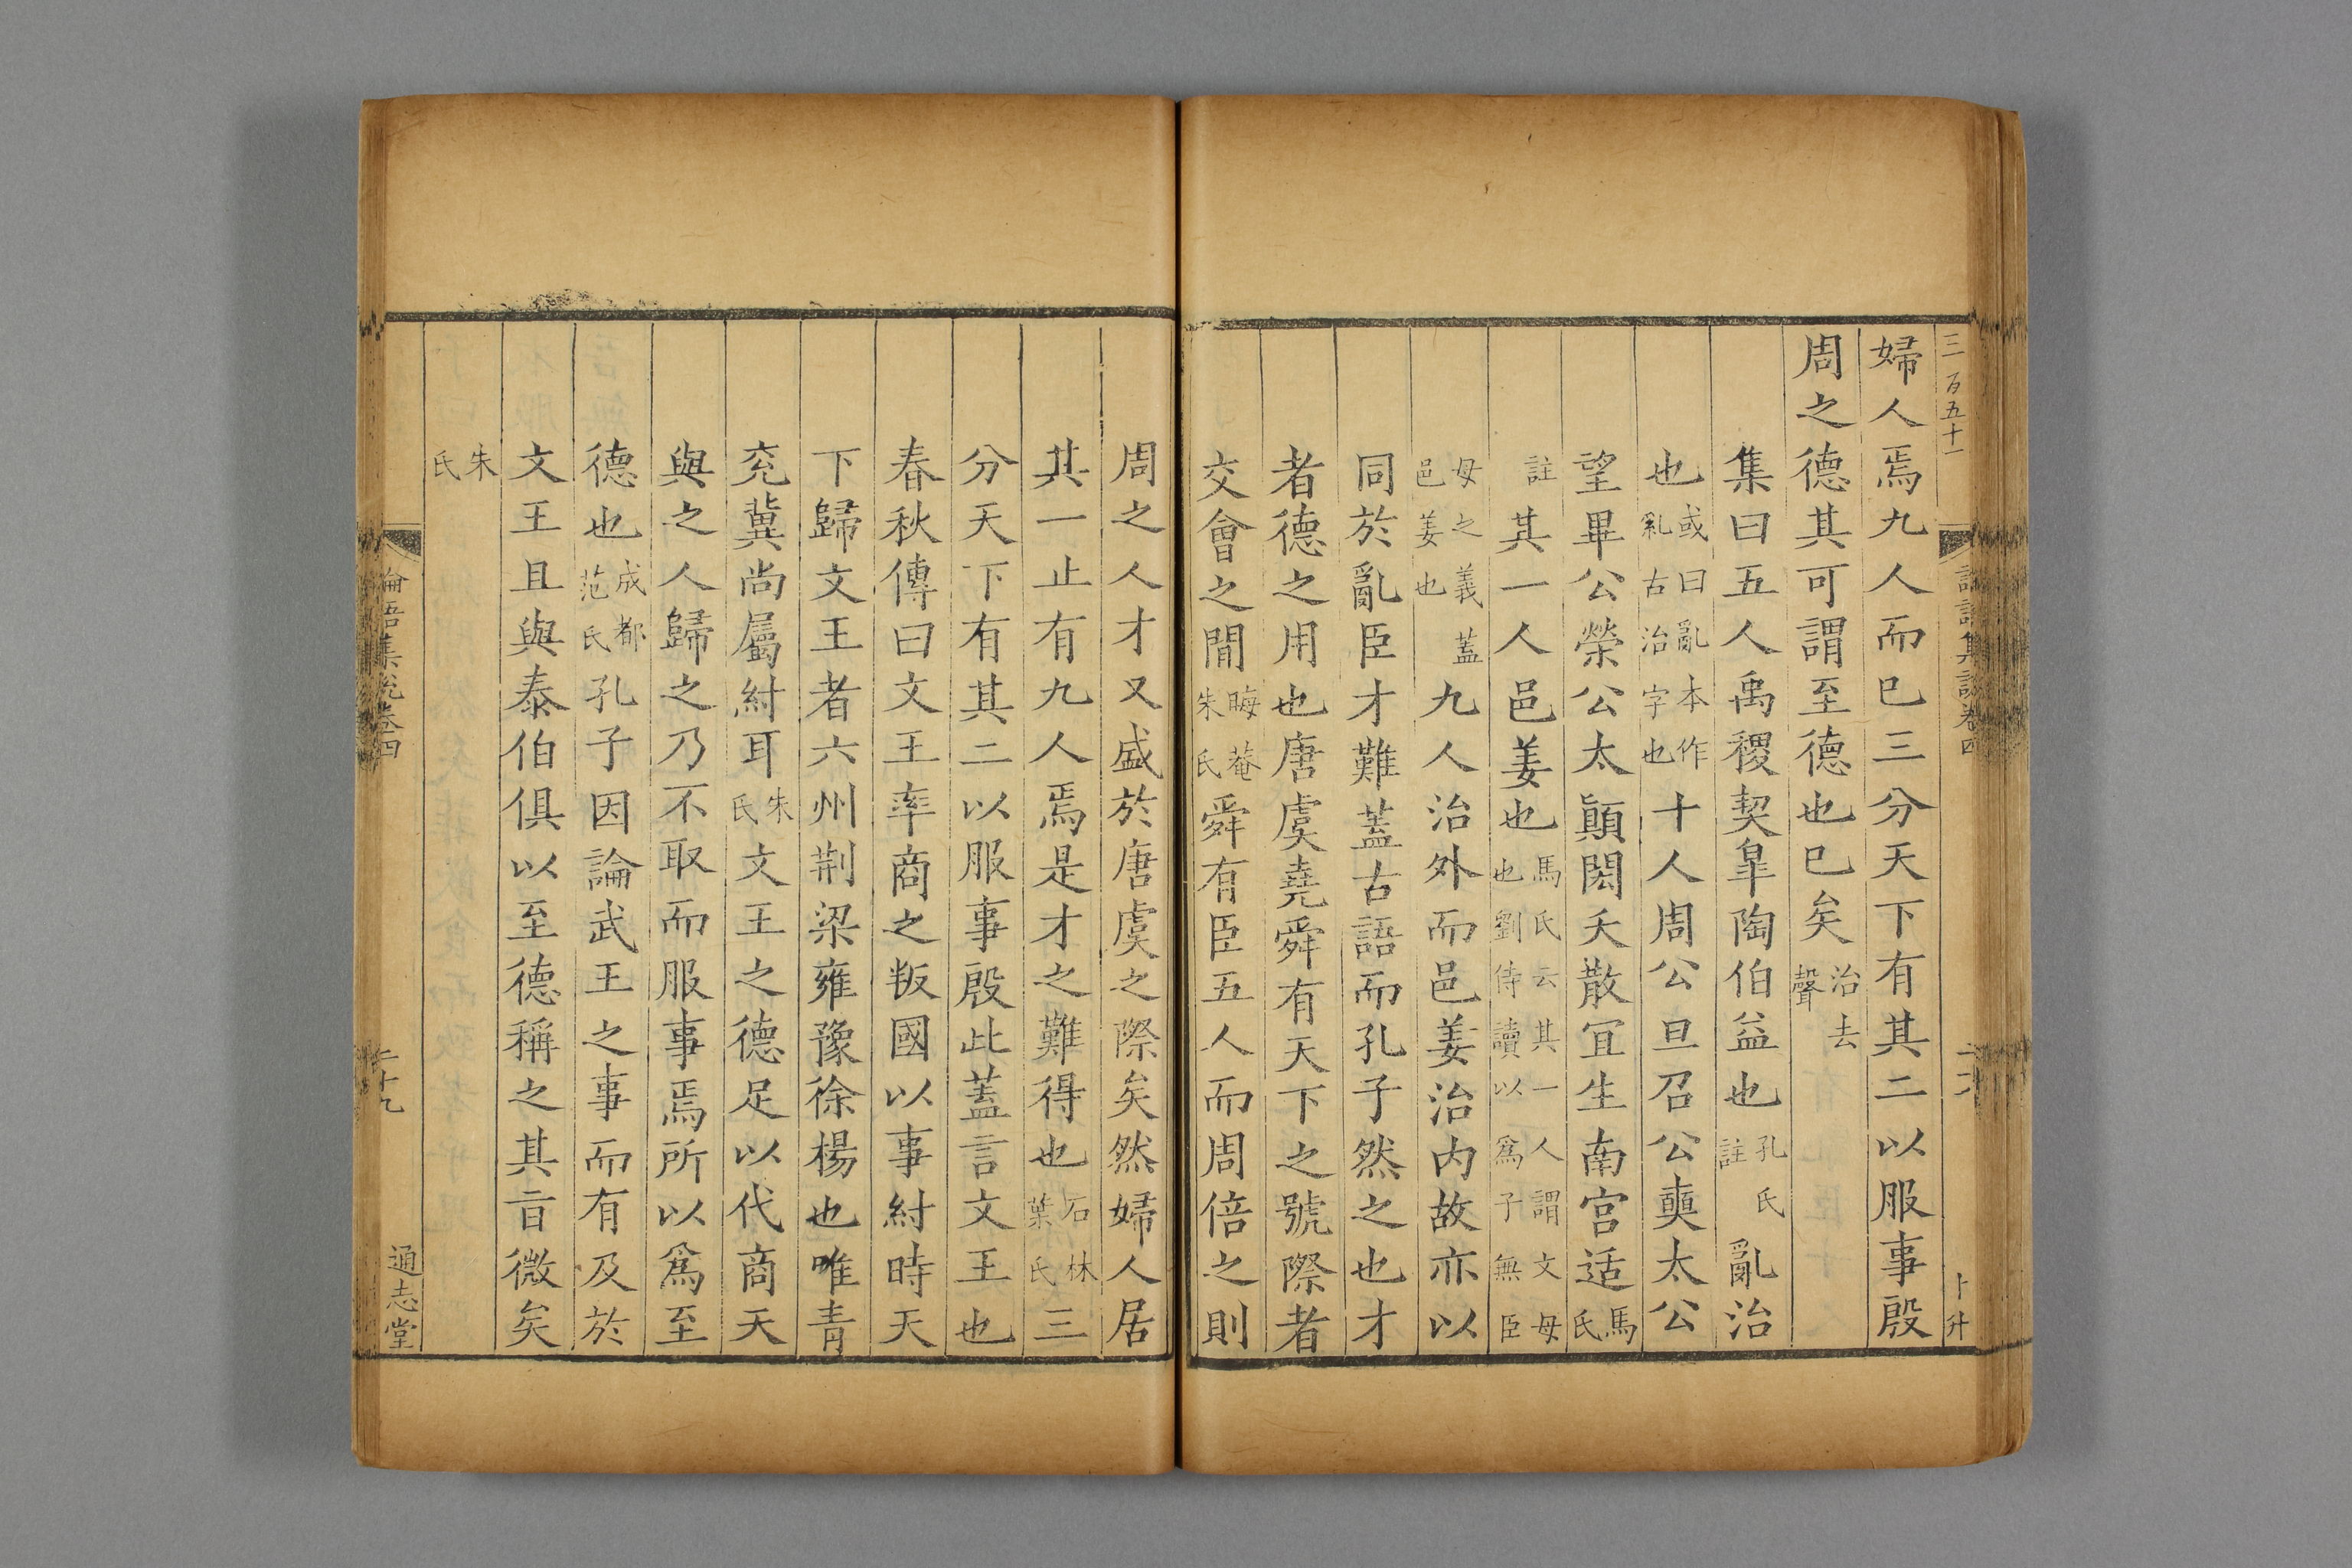 三百五十一
卜升
婦人焉九人而已三分天下有其二以服事殷
周之德其可謂至德也已矣治去聲
集曰五人禹稷契臯陶伯益也孔氏註亂治
也或曰亂本作乿古治字也十人周公旦召公奭太公
望畢公榮公太顛閎夭散宜生南宮适馬氏
註其一人邑姜也馬氏云其一人謂文母也劉侍讀以爲子無臣
母之義蓋邑姜也九人治外而邑姜治内故亦以
同於亂臣才難蓋古語而孔子然之也才
者德之用也唐虞堯舜有天下之號際者
交會之閒晦菴朱氏舜有臣五人而周倍之則
周之人才又盛於唐虞之際矣然婦人居
其一止有九人焉是才之難得也石林葉氏三
分天下有其二以服事殷此蓋言文王也
春秋傳曰文王率商之叛國以事紂時天
下歸文王者六州荆梁雍豫徐楊也唯青
兖冀尚屬紂耳朱氏文王之德足以代商天
與之人歸之乃不取而服事焉所以爲至
德也成都范氏孔子因論武王之事而有及於
文王且與泰伯俱以至德稱之其旨微矣
朱氏
論語集說卷四
二十九
通志堂